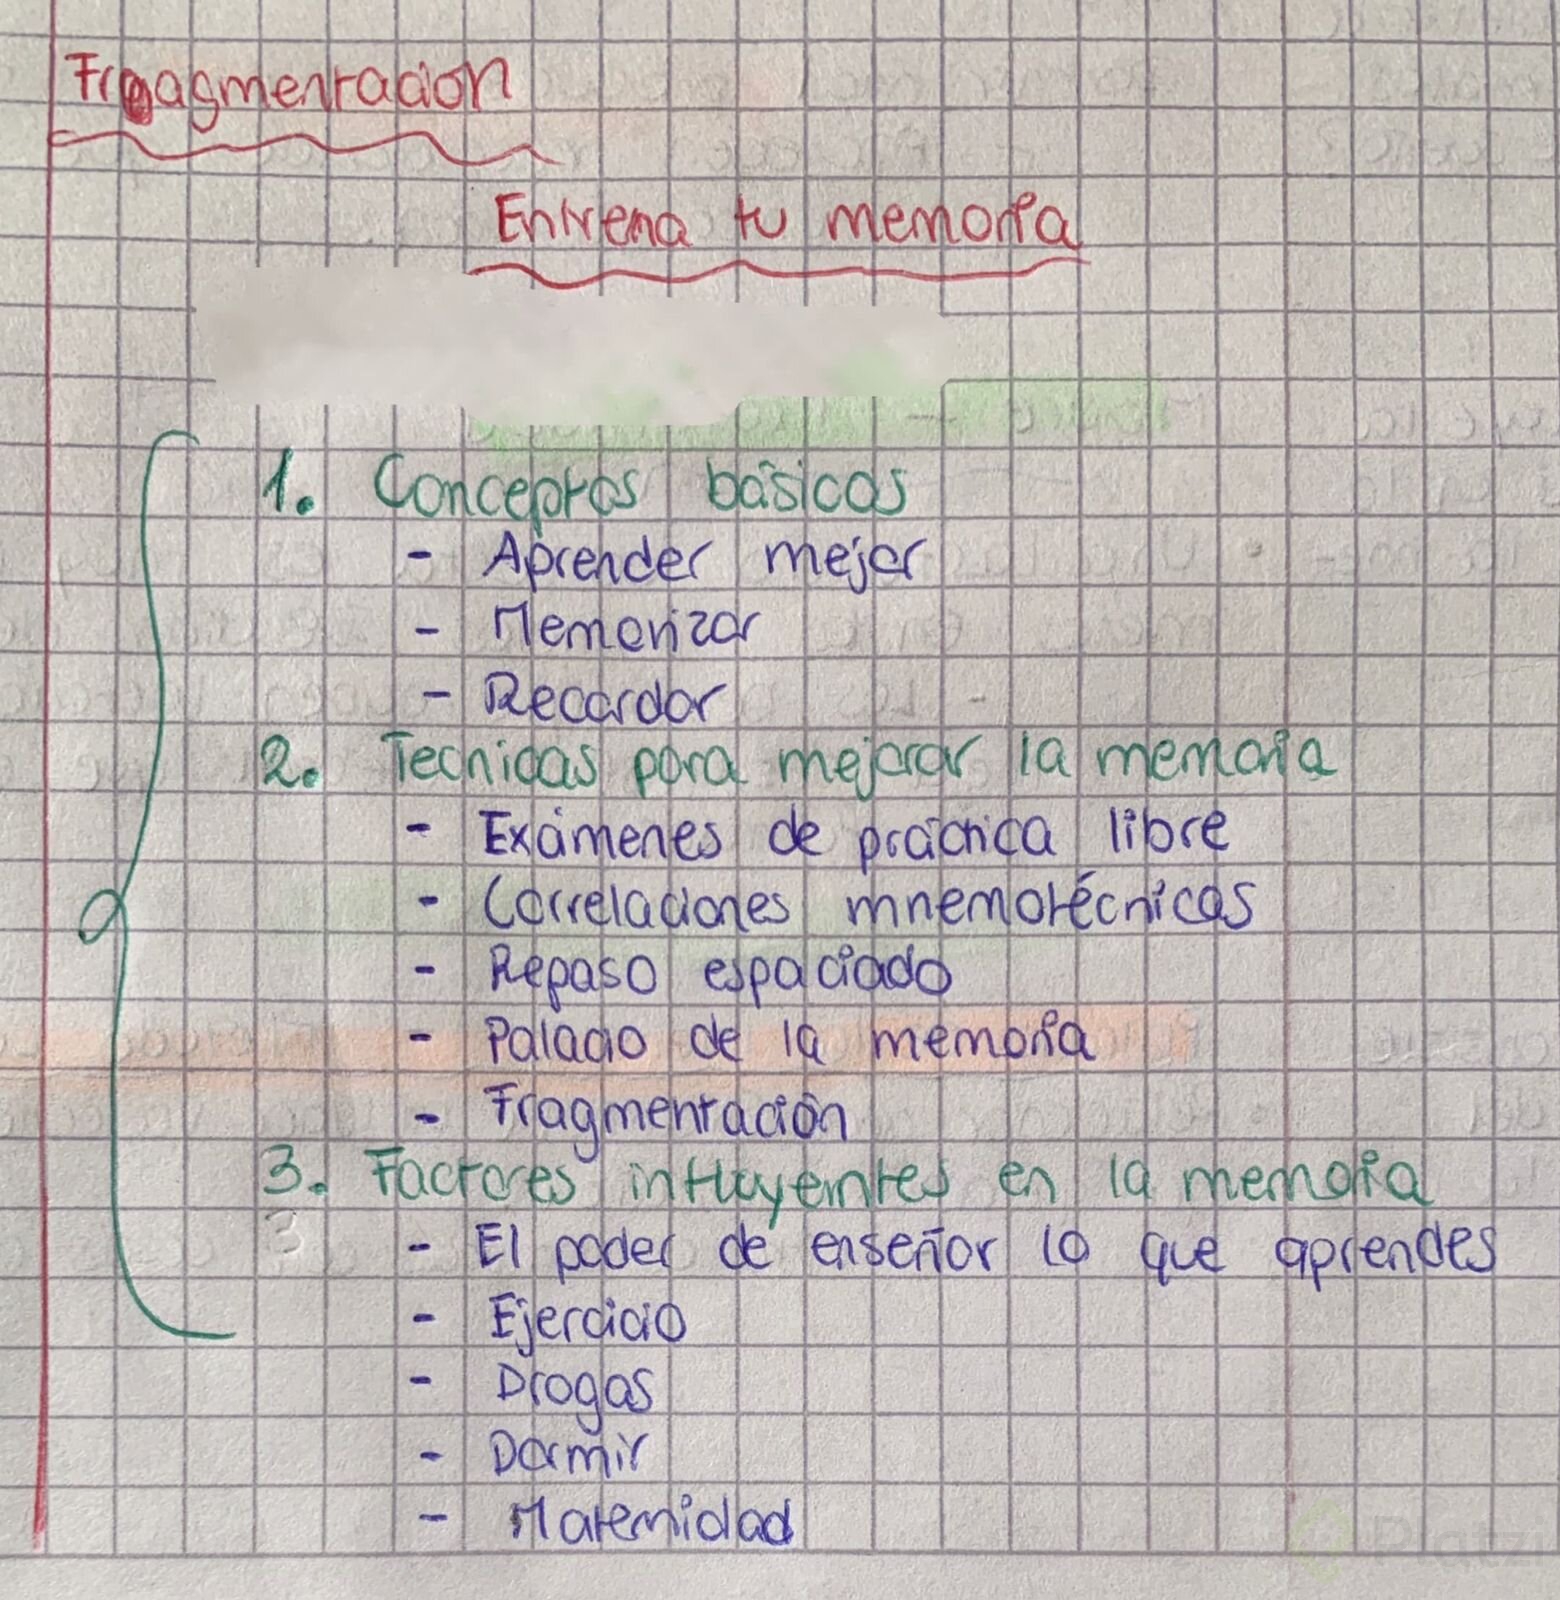 Fragmentación
Entrena tu memoria
1. Conceptos básicos
- Aprender mejor
- Memorizar
- Recordar
2. Tecnicas para mejorar la memoria
- Exámenes de práctica libre
- Correlaciones mnemotécnicas
- Repaso espaciado
- Palacio de la memoria
- Fragmentación
3. Factores influyentes en la memoria
- El poder de enseñar lo que aprendes
- Ejercicio
- Drogas
- Dormir
- Maternidad